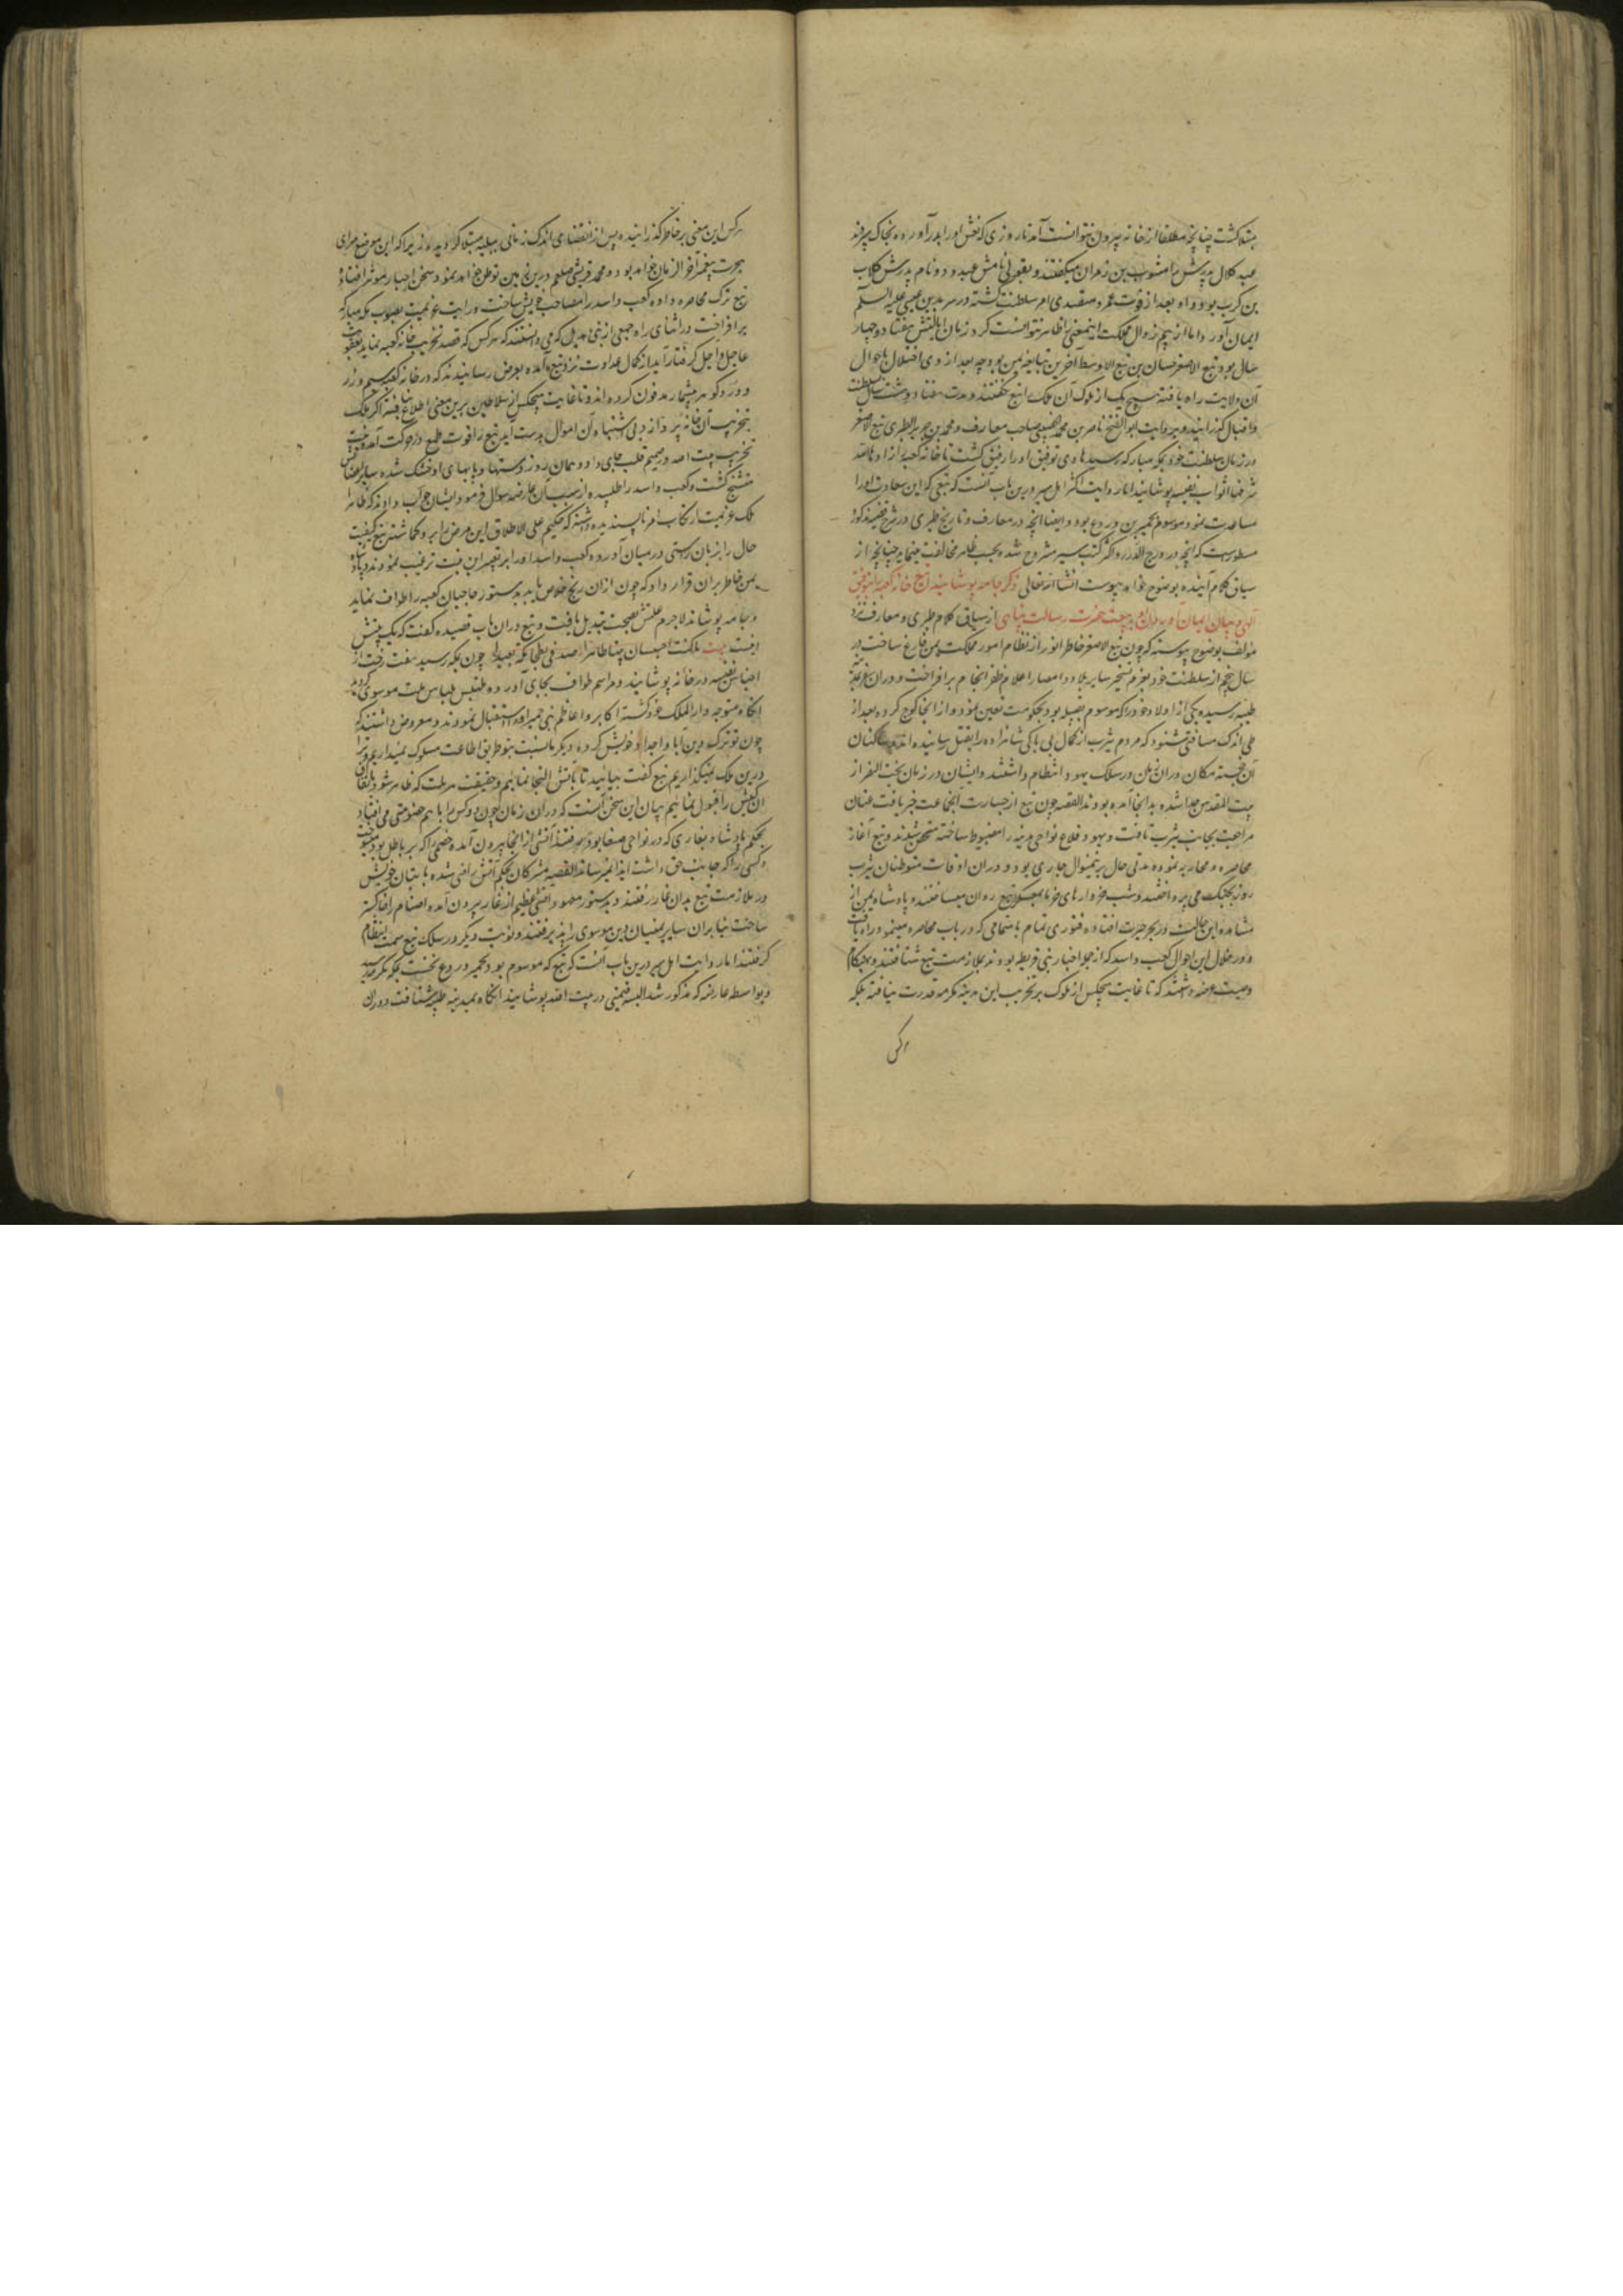 مبتلا گشت چنانچه مطلقا از خانه بیرون نتوانست آمد تا روزی که نعش او را بدر آورده بخاک سپردند
عبد کلال پدرش را مثوب بن زهران میگفتند و بقولی نامش عبدود و نام پدرش کلاب
بن کرب بود و او بعد از فوت عمرو متقلدی امر سلطنت گشته در سر بدین عیسی علیه السلم
ایمان آورد اما از بیم زوال مملکت اینمعنی را ظاهر نتوانست کرد زمان ایالتش هفتاد و چهار
سال بود تبع الاصغر حسان بن تبع الاوسط آخرین تبابعه یمن بود چه بعد از وی اختلال باحوال
آن ولایت راه یافته هیچ یک از ملوک آن ملک را تبع نگفتند و مدت هفتاد و هشت سال بسلطنت
و اقبال گذرانید و بروایت ابو الفتح ناصر بن محمد صاحب معارف و محمد بن جریر الطبری تبع الاصغر
در زمان سلطنت خود بمکه مبارکه رسید هادی توفیق او را رفیق گشت تا خانه کعبه را زادها الله
شرفا اثواب نفیسه پوشانید اما روایت اکثر اهل سیر درین باب آنست که تبعی که این سعادت او را
مساعدت نمود موسوم بحمیر بن وردع بود و ایضا آنچه در معارف و تاریخ طبری در شرح قضیه مذکوره
مسطورست که آنچه در درج الدرر و اکثر کتب سیر مشروح شده بحسب ظاهر مخالفت مینماید چنانچه از
سیاق کلام آینده بوضوح خواهد پیوست انشا الله تعالی ذکر جامه پوشانیدن تبع خانه کعبه را بتوفیق
آلهی و بیان ایمان آوردن او به بعثت حضرت رسالت پناهی از سیاق کلام طبری و معارف نزد
مولف بوضوح پیوسته که چون تبع الاصغر خاطر انور از نظام امور مملکت یمن فارغ ساخت در
سال پنجم از سلطنت خود بعزم تسخیر سایر بلاد و امصار اعلام ظفر انجام برافراخت و در آن سفر بمدینه
طیبه رسیده یکی از اولاد خود را که موسوم بفضیله بود بحکومت تعین نمود و از انجا کوچ کرده بعد از
طی اندک مسافتی شنود که مردم یثرب از کمال بی باکی شاهزاده را بقتل رسانیده اند و ساکنان
آن خجسته مکان در آن زمان در سلک یهود انتظام داشتند و ایشان در زمان بخت النصر از
بیت المقدس جدا شده بدانجا آمده بودند القصه چون تبع از جسارت آنجماعت خبر یافت عنان
مراجعت بجانب یثرب تافت و یهود قلاع نواحی مدینه را مضبوط ساخته متحصن شدند و تبع آغاز
محاصره و محاربه نموده مدتی حال برینمنوال جاری بود و در آن اوقات متوطنان یثرب
روز بجنگ می پرداختند و شب خروارهای خرما بمعسکر تبع روان میساختند و پادشاه یمن از
مشاهده این حالت در بحر حیرت افتاده فتوری تمام باهتمامی که در باب محاصره مینمود راه یافت
و در خلال این احوال کعب و اسد که از جمله احبار بنی قریظه بودند بملازمت تبع شتافتند و بهنگام
وصیت عرضه داشتند که تا غایت هیچکس از ملوک بر تخریب این مدینه مکرمه قدرت نیافته بلکه
هر کس
هر کس این معنی بر خاطر گذرانیده پس از انقضای اندک زمانی ببلیه مبتلا گردیده زیرا که این موضع سرای
هجرت پیغمبر آخر الزمان خواهد بود و محمد قریشی صلعم درین زمین توطن خواهد نمود و سخن احبار موثر افتاده
تبع ترک محاصره داده کعب و اسد را مصاحب خویش ساخت و رایت عزیمت بصوب مکه مبارکه
برافراخت در اثنای راه جمعی از بنی هذیل که می دانستند که هر کس که قصد تخریب خانه کعبه نماید بعقوبت
عاجل و آجل گرفتار آید از کمال عداوت نزد تبع آمده بعرض رسانیدند که در خانه کعبه سیم و زر
و در و گوهر بیشمار مدفون کرده اند و تا غایت هیچکس از سلاطین برین معنی اطلاع نیافته اگر ملک
بتخریب آن خانه پردازد بی اشتباه آن اموال بدست آید تبع را قوت طمع در حرکت آمده نیت
تخریب بیت الله در صمیم قلب جای داد و همان روز دستها و پایهای او خشک شده سایر اعضایش
متشنج گشت و کعب و اسد را طلبیده از سبب آن عارضه سوال فرمود و ایشان جواب دادند که ظاهرا
ملک عزیمت ارتکاب امر ناپسندیده داشته که حکیم علی الاطلاق این مرض را برو گماشته تبع کیفیت
حال را بزبان راستی در میان آورده کعب و اسد او را بر تغییر آن نیت ترغیب نمودند و پادشاه
یمن خاطر بر آن قرار داد که چون ازان رنج خلاص یابد بدستور حاجیان کعبه را طواف نماید
و جامه پوشاند لاجرم علتش بصحت تبدیل یافت و تبع در آن باب قصیده گفت که یک بیتش
اینست بیت
چون بمکه رسید هفت رخت از
اجناس نفیسه در خانه پوشانید و مراسم طواف بجای آورده ملتبس بلباس ملت موسوی گردید
آنگاه متوجه دار الملک خود گشته اکابر و اعاظم بنی حمیر او را استقبال نمودند و معروض داشتند که
چون تو ترک دین آبا و اجداد خویش کرده دیگر ما نسبت بتو طریق اطاعت مسلوک نمیداریم و ترا
درین ملک نمیگذاریم تبع گفت بیائید تا بآتش التجا نمائیم و حقیقت هر ملت که ظاهر شود باتفاق
آن کیش را قبول نمائیم بیان این سخن آنست که در آن زمان چون دو کس را با هم خصومتی می افتاد
بحکم پادشاه بغاری که در نواحی صنعا بود میرفتند آتشی از انجا بیرون آمده خصمی را که بر باطل بود میسوخت
و کسی را که جانب حق داشت ایذا نمیرساند القصه مشرکان بحکم آتش راضی شده با بتان خویش
در ملازمت تبع بدان غار رفتند و بدستور معهود آتشی عظیم از غار بیرون آمده اصنام را خاکستر
ساخت بنابر آن سایر یمنیان دین موسوی را پذیرفتند و نوبت دیگر در سلک تبع سمت انتظام
گرفتند اما روایت اهل سیر درین باب آنست که تبع که موسوم بود بحمیر وردع نخست بمکه مکرمه رسید
و بواسطه عارضه که مذکور شد البسه قیمتی در بیت الله پوشانید آنگاه بمدینه طیبه شتافت و در آن